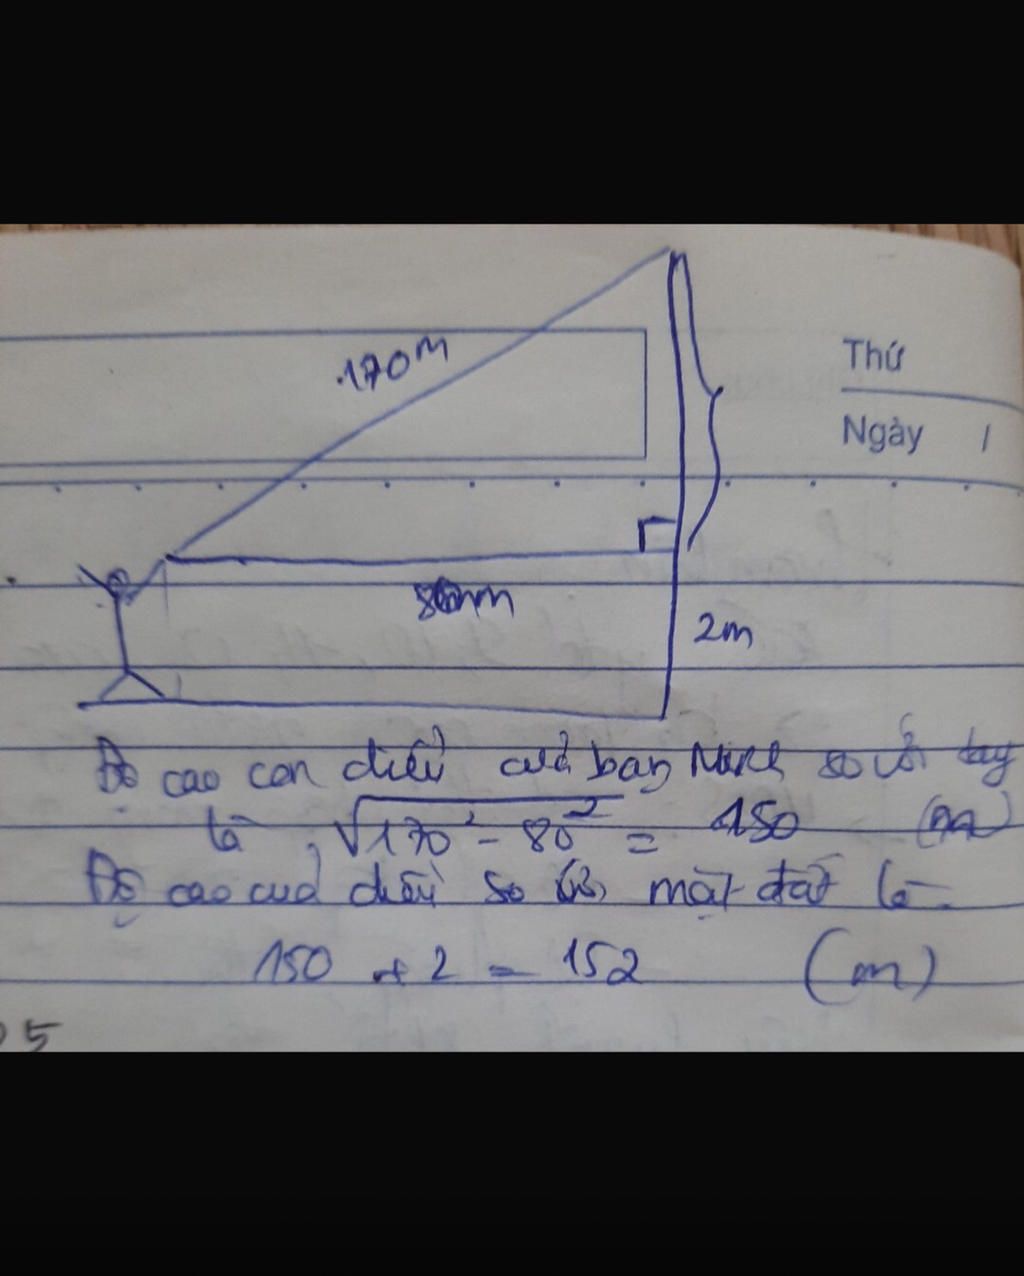 170m
Thứ
Ngày /
80m
2m
Độ cao con diều của bạn Minh so với tay
là √170² - 80² = 150 (m)
Độ cao của diều so với mặt đất là
150 + 2 = 152 (m)
5